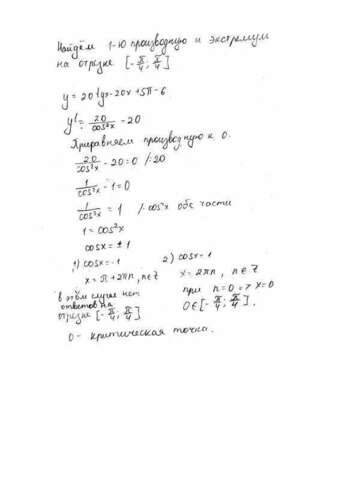 Найдём 1-ю производную и экстремум
на отрезке [-π/4; π/4]
y = 20tgx - 20x + 5π - 6
y' = 20/cos²x - 20
Приравняем производную к 0.
20/cos²x - 20 = 0 /:20
1/cos²x - 1 = 0
1/cos²x = 1 /·cos²x обе части
1 = cos²x
cosx = ±1
1) cosx = -1
x = π + 2πn, n∈Z
в этом случае нет
ответов на
отрезке [-π/4; π/4]
2) cosx = 1
x = 2πn, n∈Z
при n = 0 => x = 0
0∈[-π/4; π/4].
0 - критическая точка.